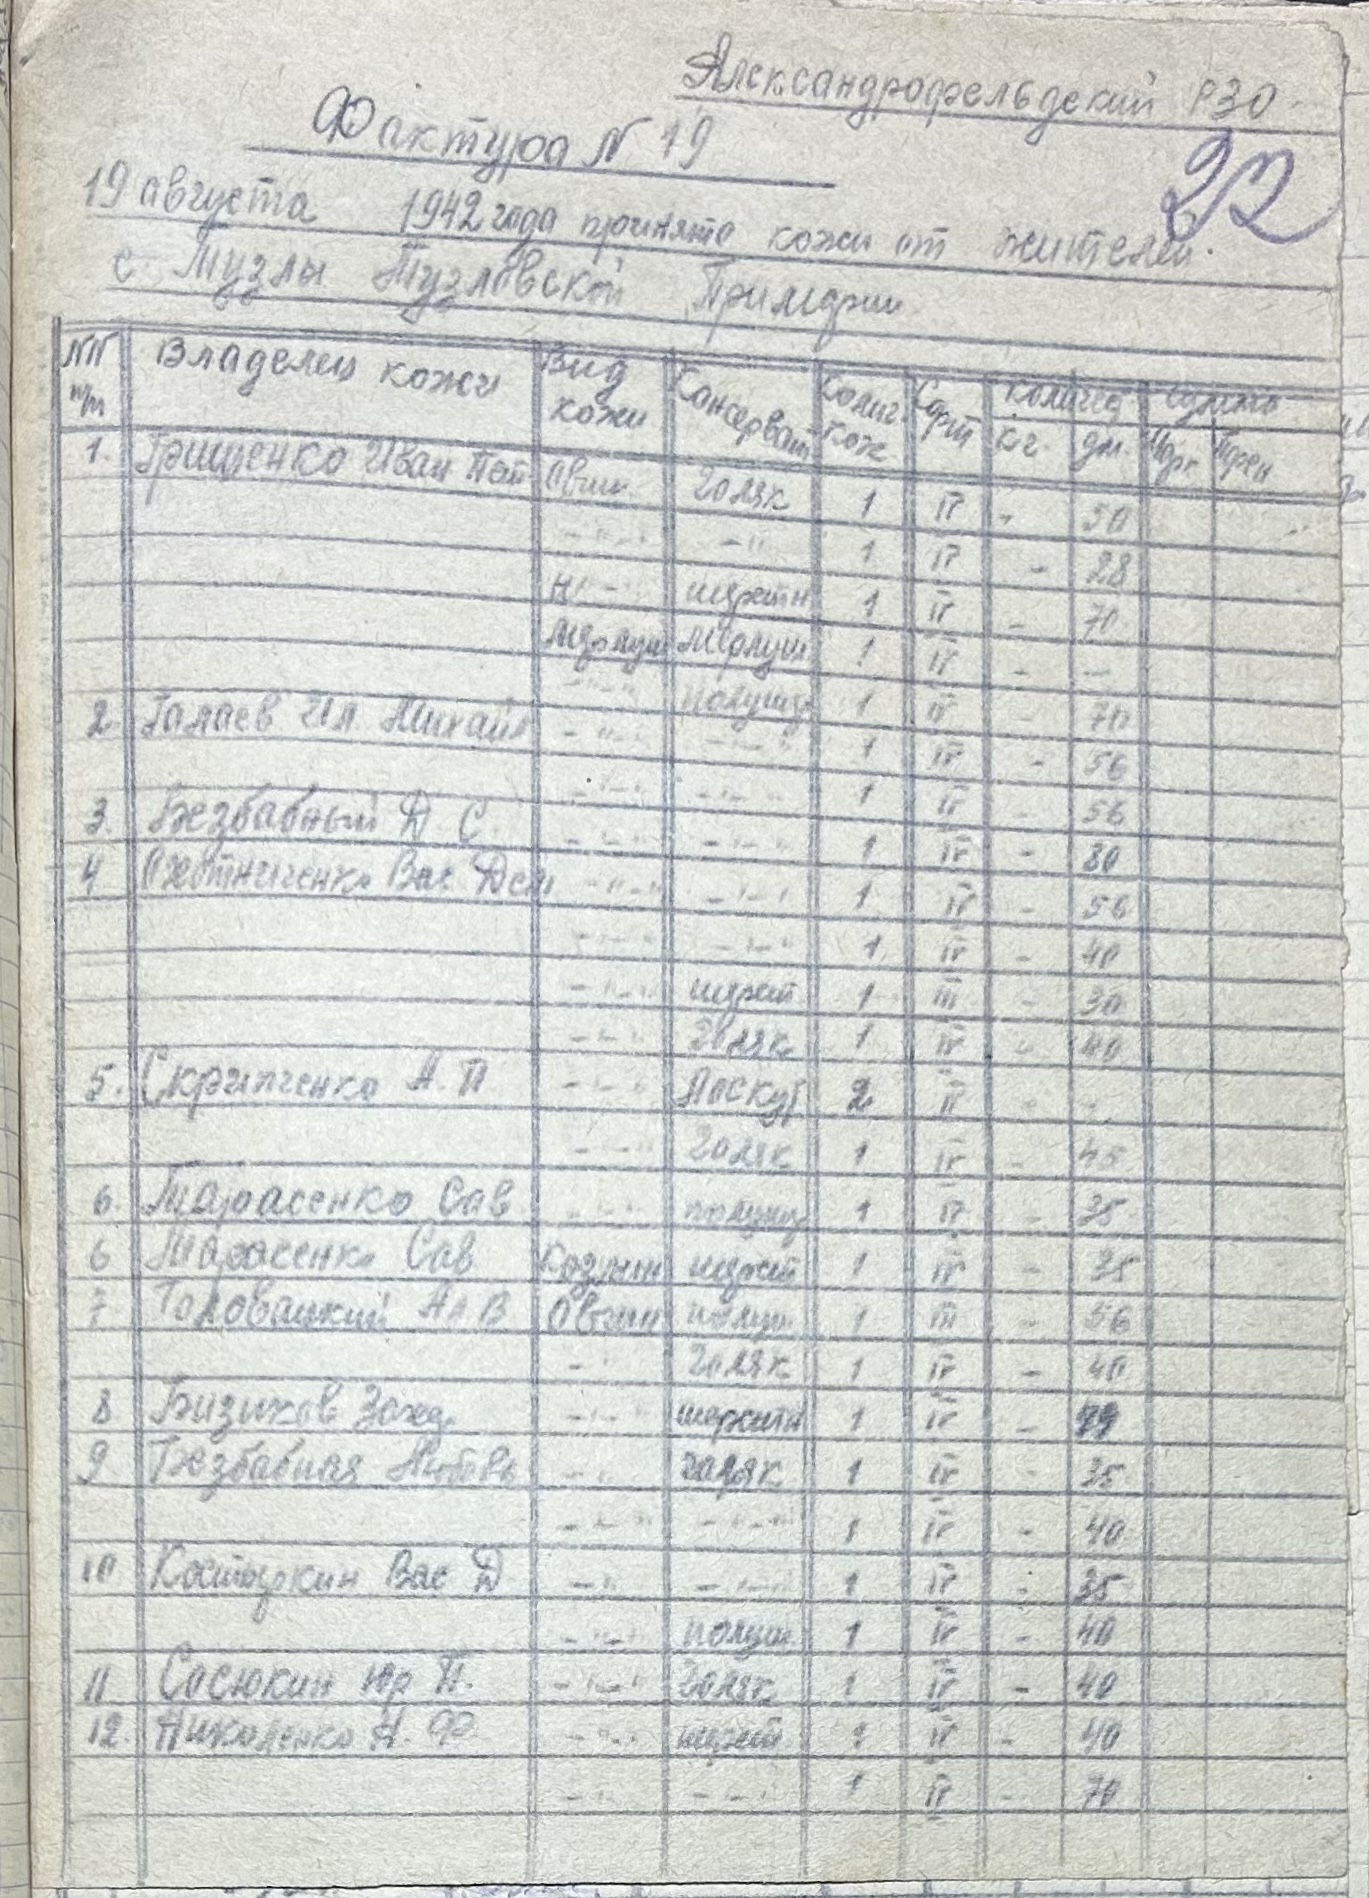 Александрофельдский РЗО
Фактура N 19
22
19 августа 1942 года принято кожи от жителей
с. Тузлы Тузловской Примэрии
NN п/п Владелец кожи Вид кожи Консерват Колич. кож Сорт Количес Сумма
кг. дм.
1. Грищенко Иван Овчин. Голяк 1 IV - 50
-"-"- -"- 1 IV - 28
шерстн 1 IV - 70
Мерлуш Мерлуш 1 IV - -
-"-"- Полушер 1 IV - 70
2. Галаев Ил. Михайл -"-"- -"-"- 1 IV - 56
-"-"- -"-"- 1 IV - 56
3. Безбабный Д. С. -"-"- -"-"- 1 IV - 80
4 Охотниченко Вас. Дем -"-"- -"-"- 1 IV - 56
-"-"- -"-"- 1 IV - 40
-"-"- шерст 1 III - 30
-"-"- Голяк 1 IV - 40
5. Скрипченко А. П -"-"- Лоскут 2 IV - -
-"-"- Голяк 1 IV - 45
6. Тарасенко Сав -"-"- полушер 1 IV - 35
6 Тарасенко Сав Козлин шерст 1 IV - 35
7 Головацкий Овчин полуш 1 III - 56
-"- Голяк 1 IV - 40
8 Бизиков -"-"- шерстн 1 IV -
9. Безбабная Любовь -"- Голяк 1 IV - 35
-"-"- -"-"- 1 IV - 40
10 Костюркин Вас Д -"- -"-"- 1 IV - 35
-"-"- полуш 1 IV - 40
11 Сосюкин Юр П. -"-"- Голяк 1 IV - 40
12. Николенко А. Ф -"-"- шерст 1 IV - 40
-"-"- 1 IV - 70